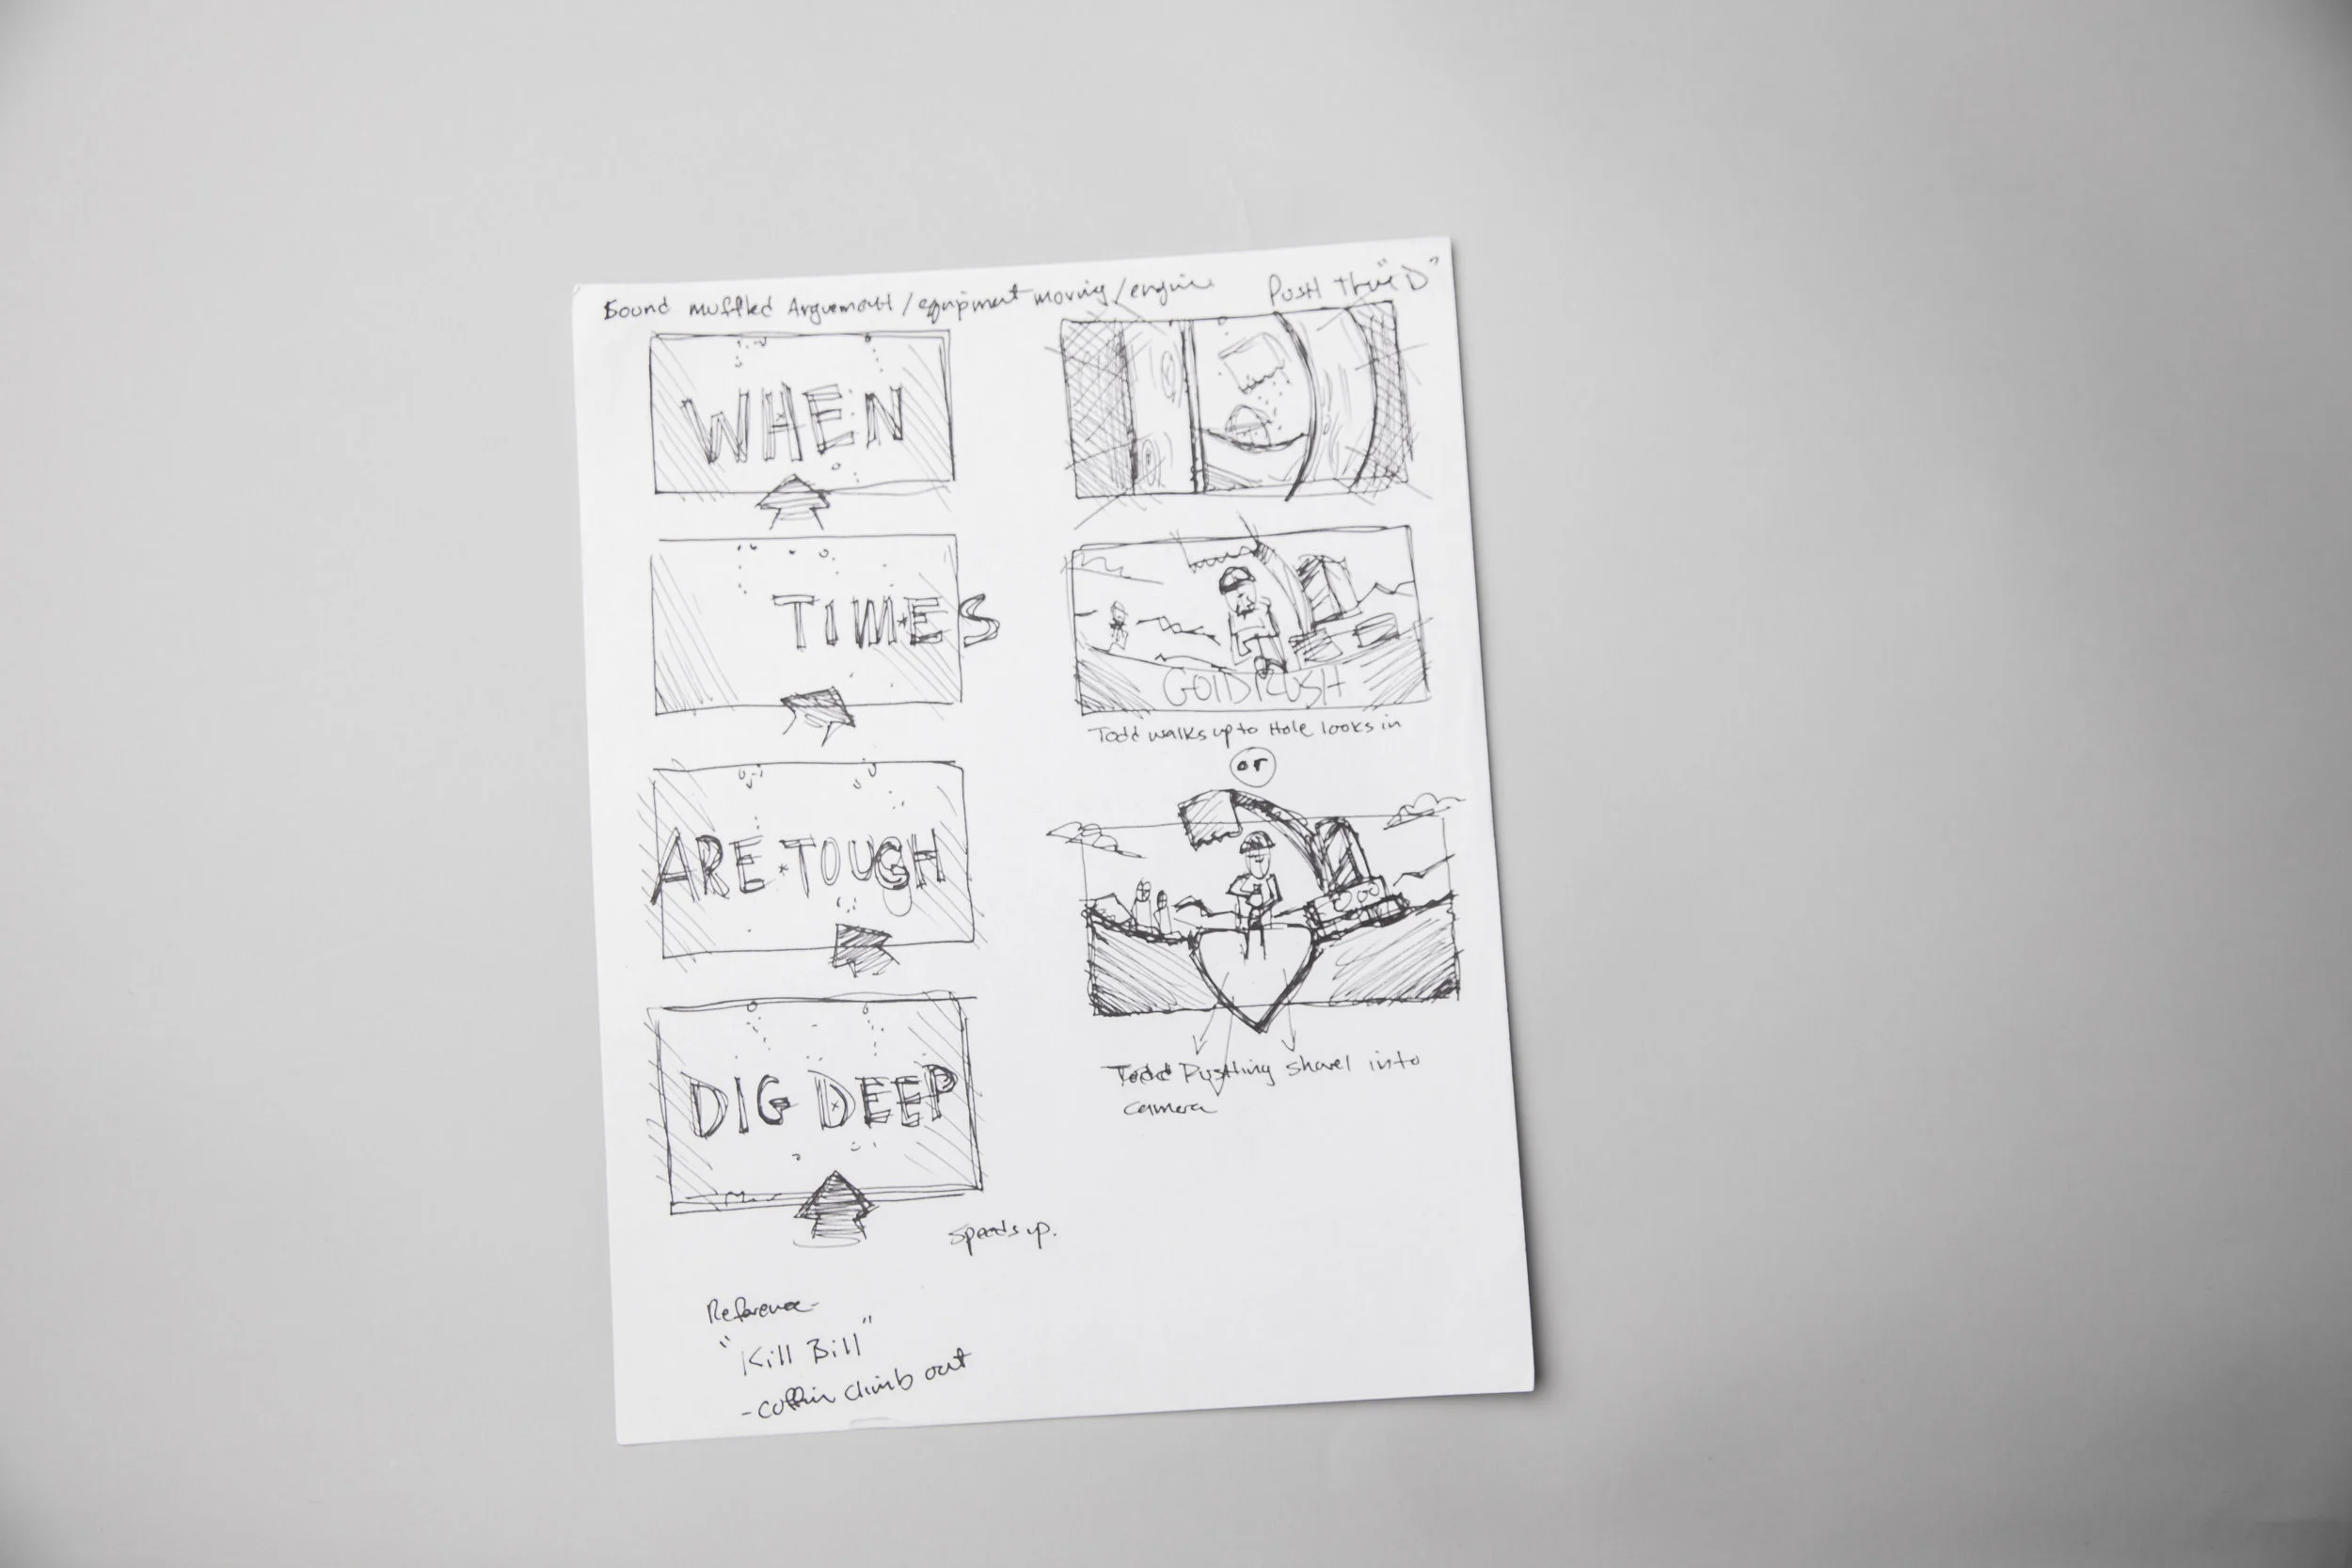 Sound muffled Arguement / equipment moving / engine
WHEN
TIMES
ARE TOUGH
DIG DEEP
Speeds up.
Reference -
"Kill Bill"
- coffin climb out
Push thru "D"
GOLD RUSH
Todd walks up to Hole looks in
or
Todd Pushing shovel into
camera